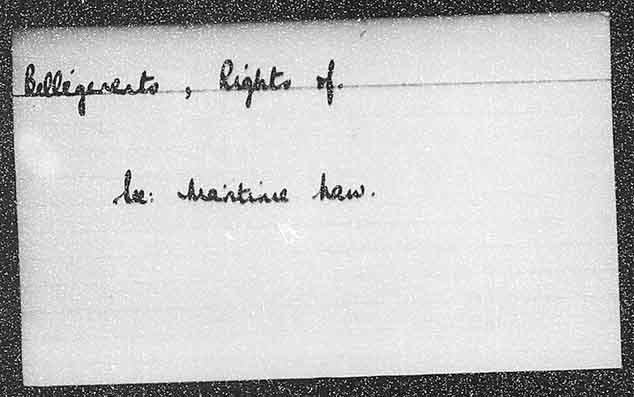 Belligerents, Rights of.
See: Maritime Law.